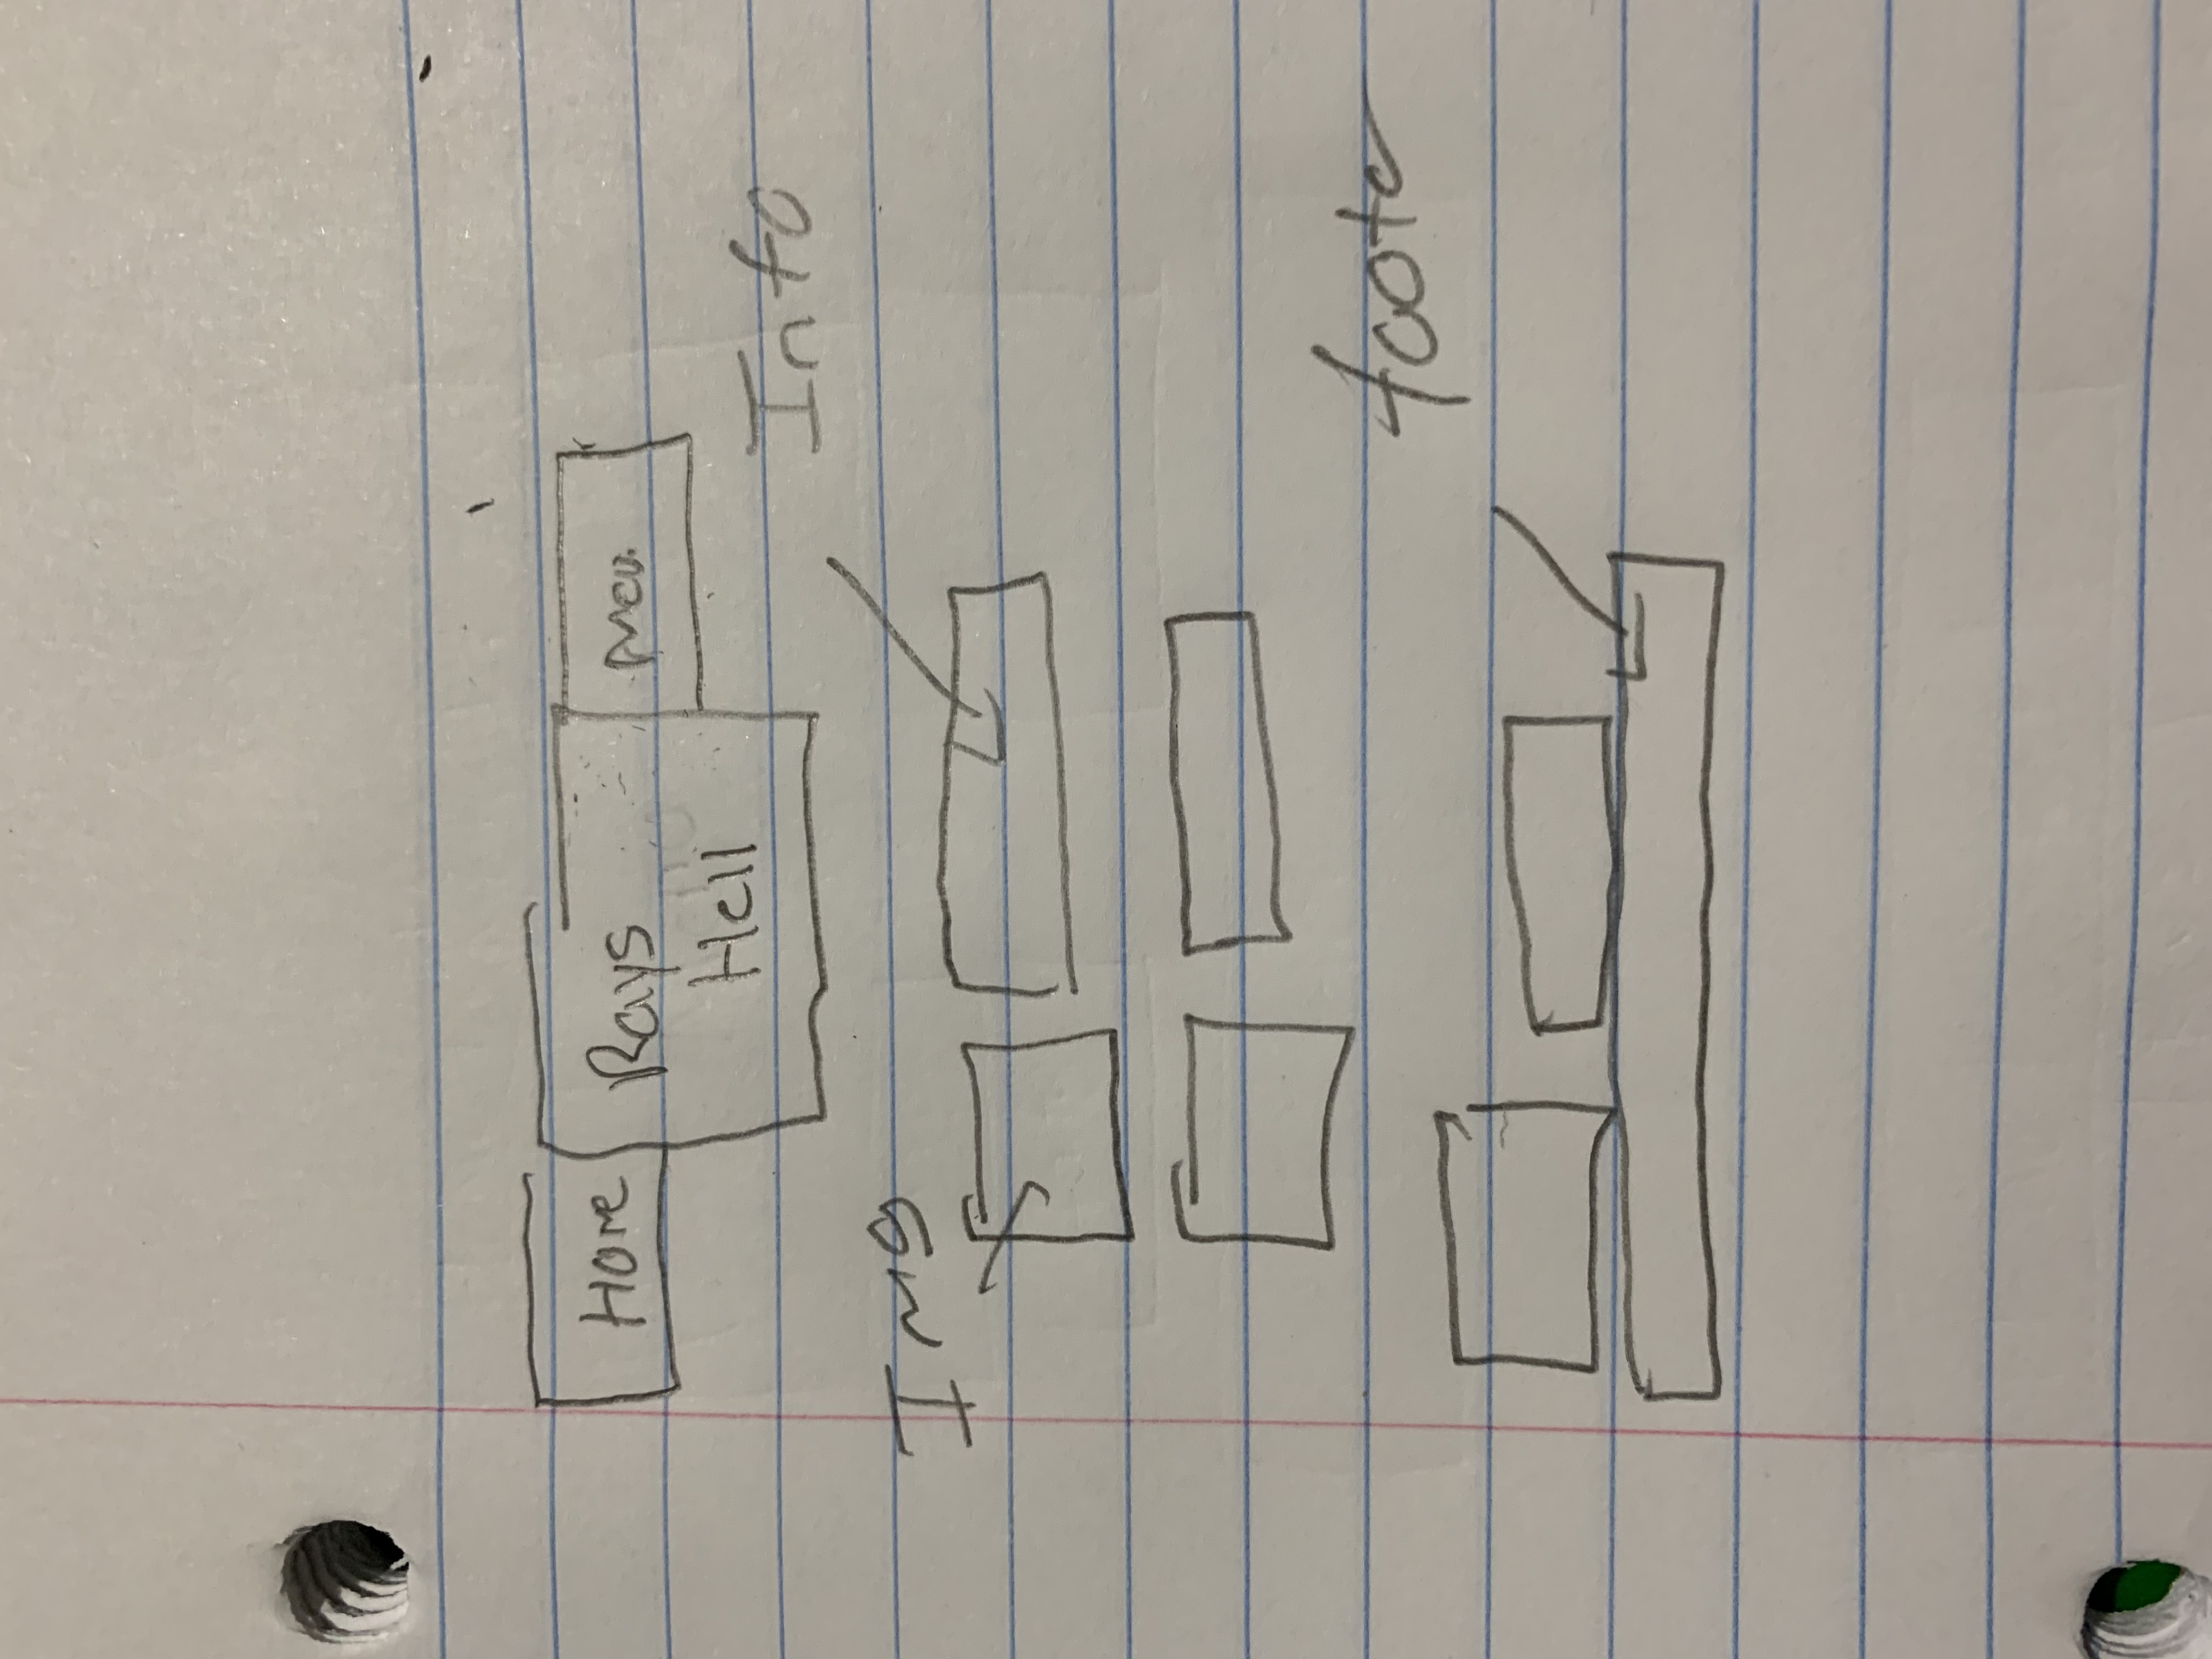 Home
Rays
Hell
Info
Img
footer